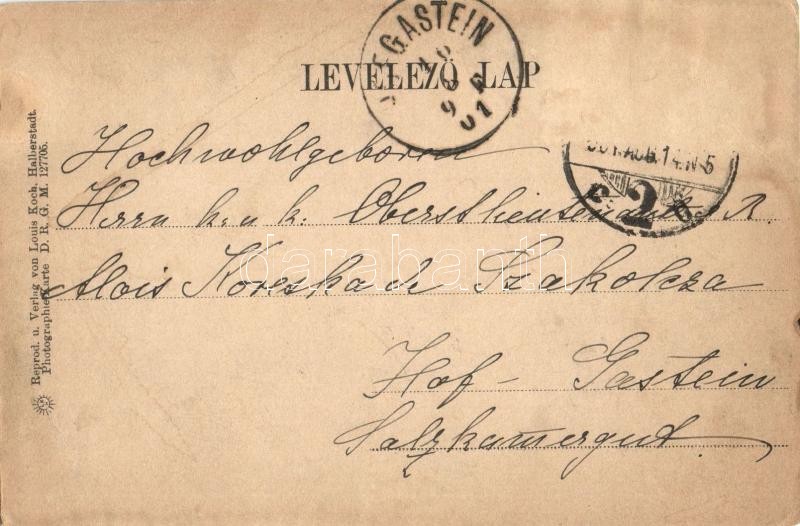 LEVELEZŐ LAP
Hochwohlgeboren
Herrn k. u. k. Oberstlieutenant i. R.
Alois Koreska de Szakolcza
Hof-Gastein
Salzkammergut.
Reprod. u. Verlag von Louis Koch, Halberstadt.
Photographie-Karte D. R. G. M. 127705.
GASTEIN
2
darabanth